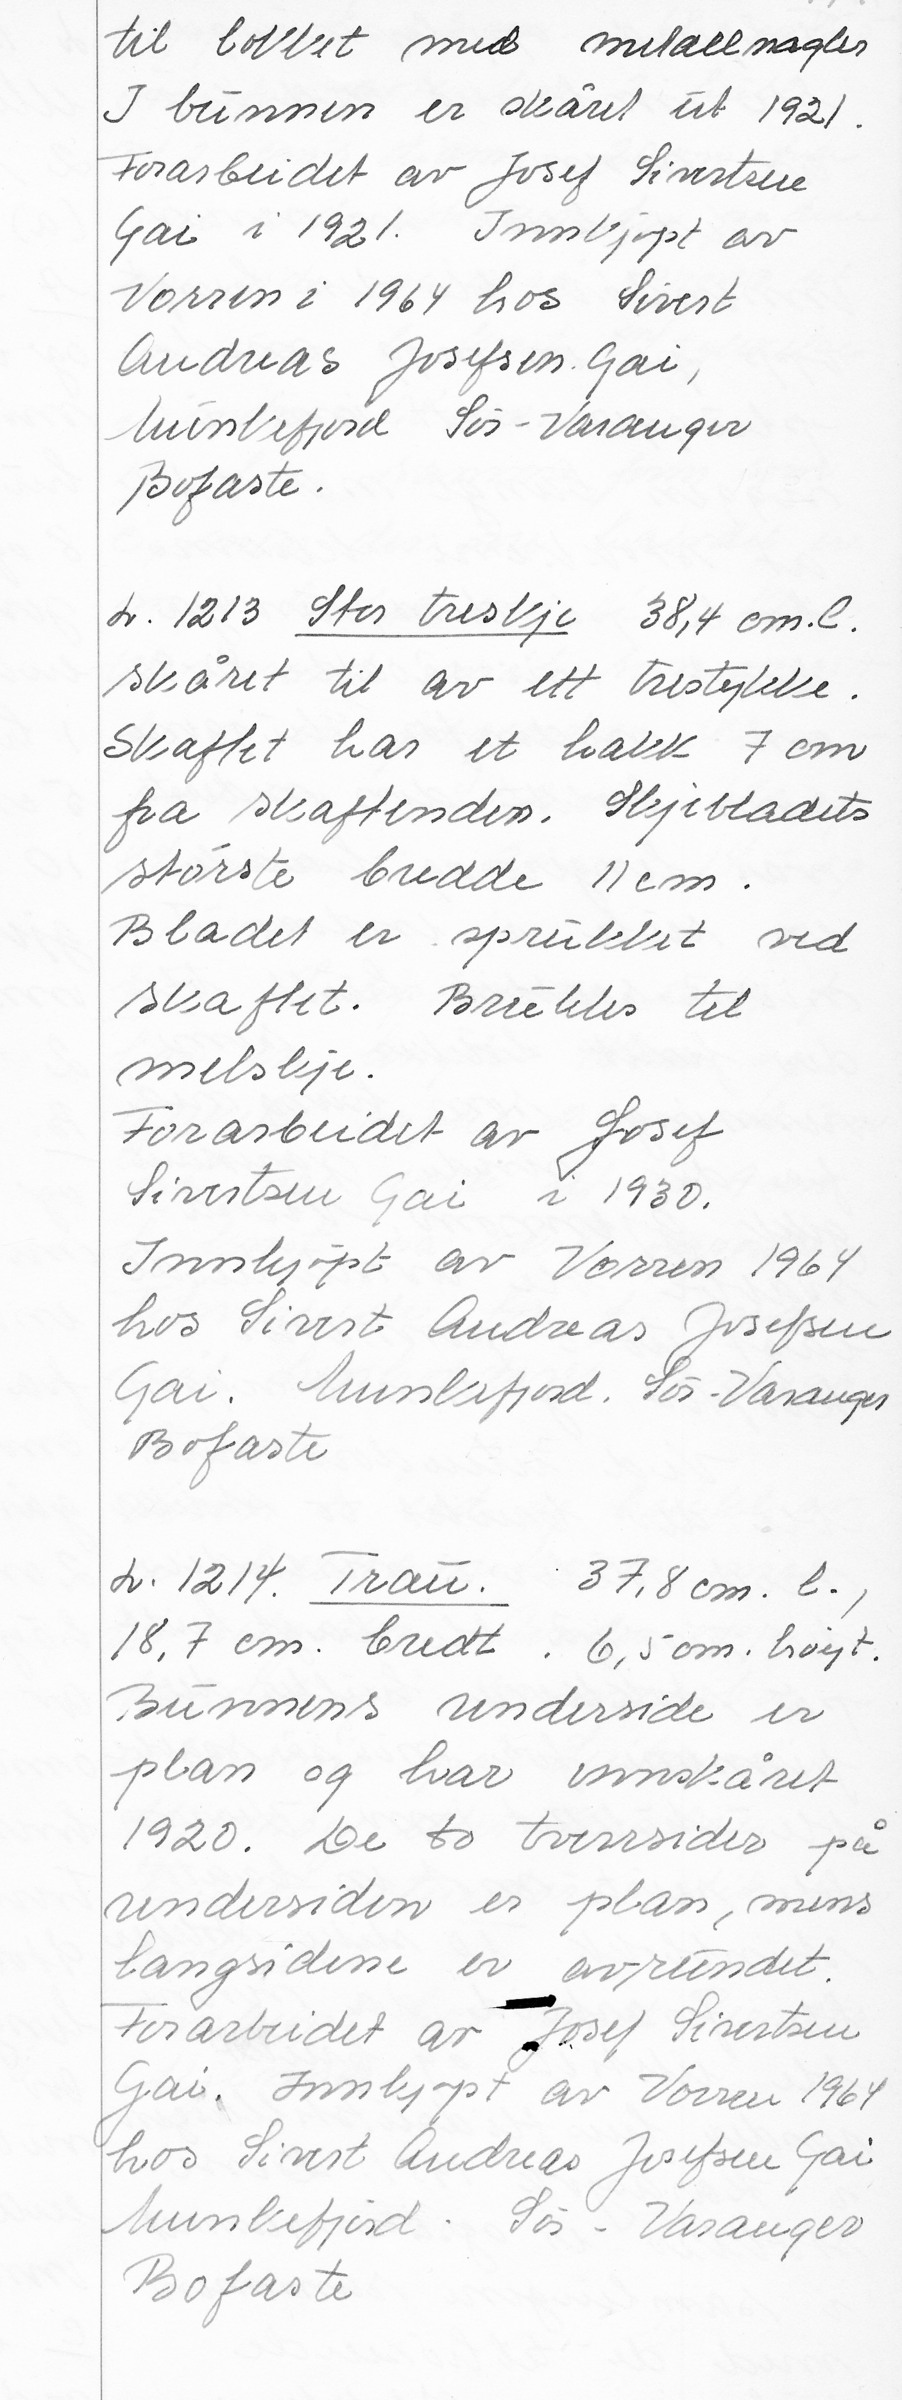 til lokket med metallnagler
I bunnen er skåret ut 1921.
Forarbeidet av Josef Sivertsen
Gai i 1921. Innkjøpt av
Vorren i 1964 hos Sivert
Andreas Josefsen Gai,
Munkefjord Sör-Varanger
Bofaste.
L. 1213 Stor treskje 38,4 cm. l.
skåret til av ett trestykke.
Skaftet har et hakk 7 cm
fra skaftenden. Skjebladets
største bredde 11 cm.
Bladet er sprukket ved
skaftet. Brukes til
melskje.
Forarbeidet av Josef
Sivertsen Gai i 1930.
Innkjøpt av Vorren 1964
hos Sivert Andreas Josefsen
Gai. Munkefjord. Sör-Varanger
Bofaste
L. 1214. Trau. 37,8 cm. l.,
18,7 cm. bredt. 6,5 cm. høyt.
Bunnens underside er
plan og har innskåret
1920. De to tverrsider på
undersiden er plan, mens
langsidene er avrundet.
Forarbeidet av Josef Sivertsen
Gai. Innkjøpt av Vorren 1964
hos Sivert Andreas Josefsen Gai
Munkefjord. Sör-Varanger
Bofaste